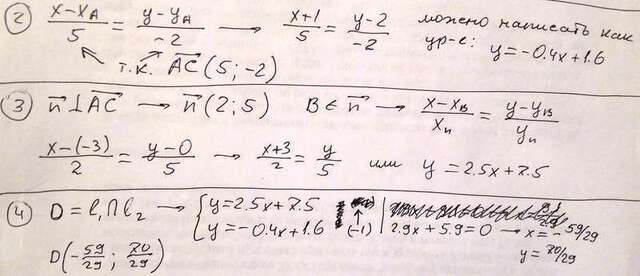 ② (x-x_A)/5 = (y-y_A)/-2 → (x+1)/5 = (y-2)/-2 можно написать как
ур-е: y = -0.4x+1.6
т.к. AC⃗ (5; -2)
③ n⃗ ⊥ AC⃗ → n⃗ (2; 5) B ∈ n⃗ → (x-x_B)/x_n = (y-y_B)/y_n
(x-(-3))/2 = (y-0)/5 → (x+3)/2 = y/5 или y = 2.5x+7.5
④ D = l₁ ∩ l₂ → { y=2.5x+7.5
y=-0.4x+1.6 ↑ (-1) | 2.9x+5.9=0 → x=-59/29
D(-59/29; 70/29) y=70/29